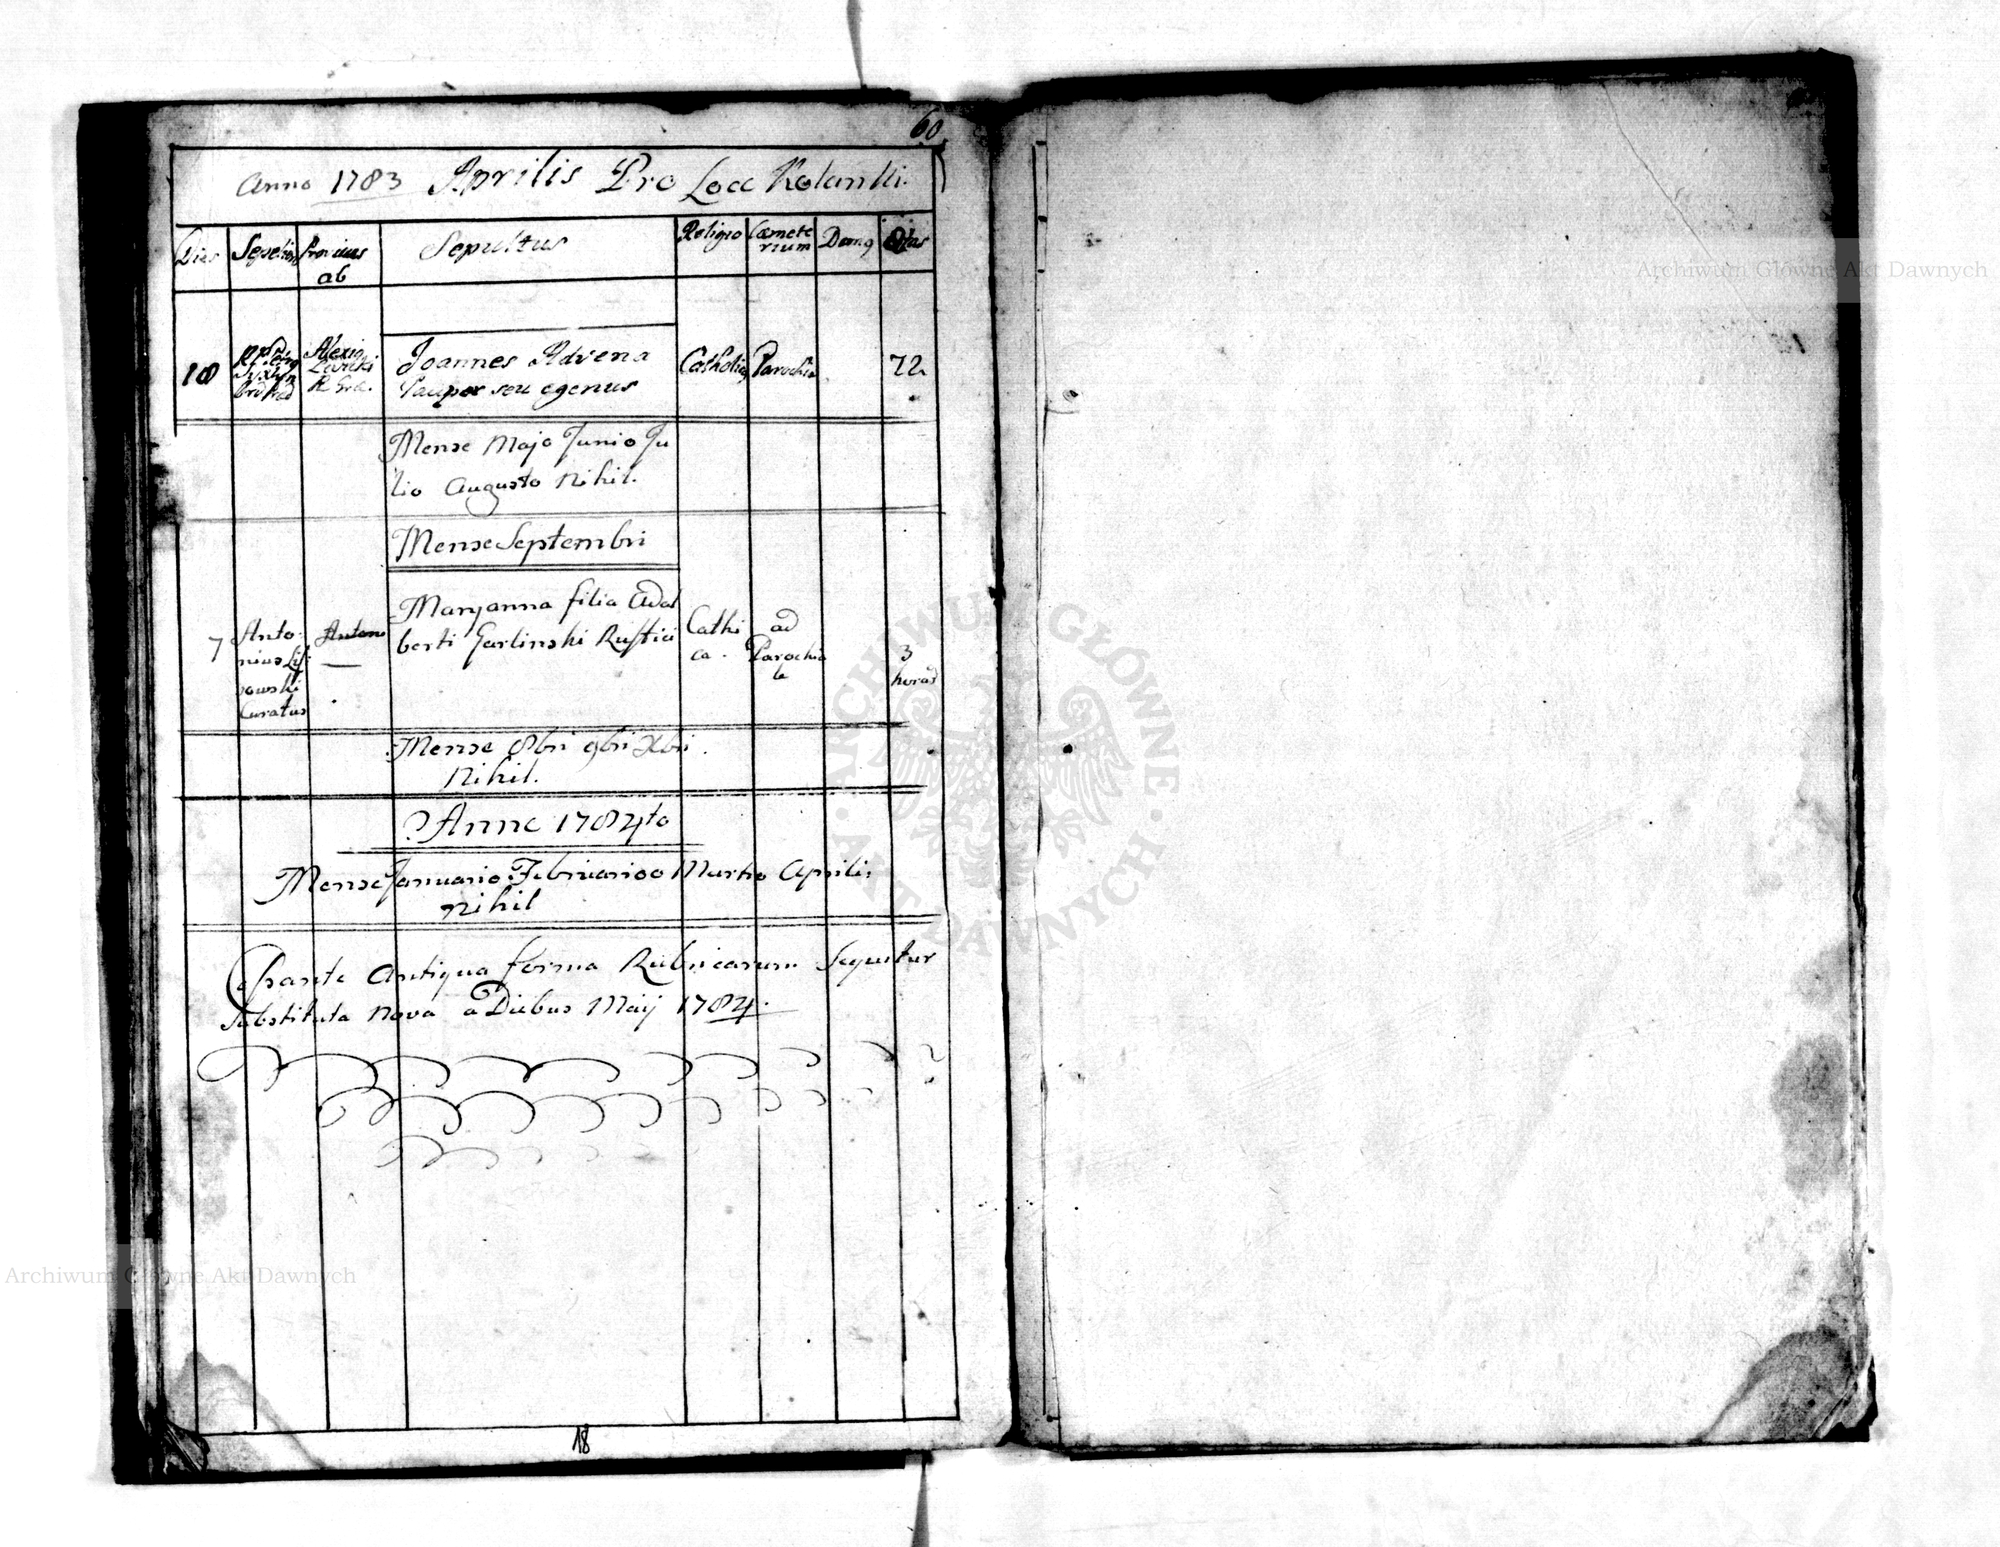 60
Anno 1783 Aprilis Pro Loco
Dies
Sepeliens
Provisus
ab
Sepultus
Religio
Cœmete
rium
Domq
Ætas
18
Alexio
Levicki
R. Gre.
Joannes Advena
Pauper seu egenus
Catholicq
Parochia
72
Mense Majo Junio Ju
lio Augusto Nihil.
Mense Septembri
7
Anto
nius
sowski
Curatus
Antoni
Maryanna filia Adal
berti Garlinski Rustici
Cathi
ca.
ad
Parochia
le
3
horas
Mense 8bri 9bri Xbri
Nihil.
Anno 1784to
Mense Januario Februarioo Martio Aprili
nihil
Antiqua forma Rubricarum Sequitur
Substituta Nova a Diebus Maij 1784.
18
Archiwum Główne Akt Dawnych
Archiwum Główne Akt Dawnych
ARCHIWUM GŁÓWNE
AKT DAWNYCH